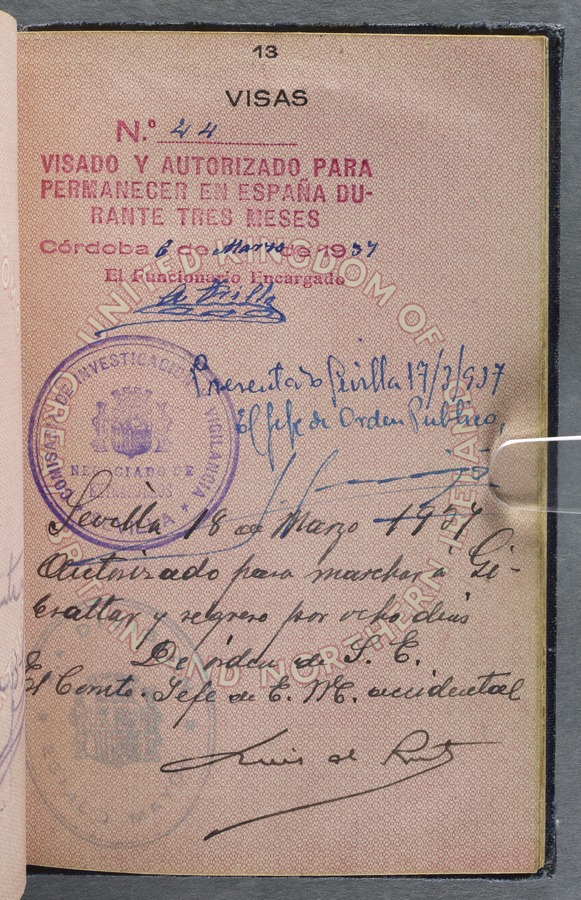 13
VISAS
N.º 44
VISADO Y AUTORIZADO PARA
PERMANECER EN ESPAÑA DU-
RANTE TRES MESES
Córdoba 6 de Marzo de 1937
El Funcionario Encargado
COMISARIA DE INVESTIGACION VIGILANCIA
NEGOCIADO DE
Presentado Sevilla 17/3/937
El Jefe de Orden Publico,
Sevilla 18 de Marzo 1937
Autorizado para marchar a Gi-
braltar y regreso por ocho dias
De órden de S. E.
El Comte. Jefe de E. M. accidental
Luis de
ESTADO MAYOR
UNITED KINGDOM OF GREAT BRITAIN AND NORTHERN IRELAND